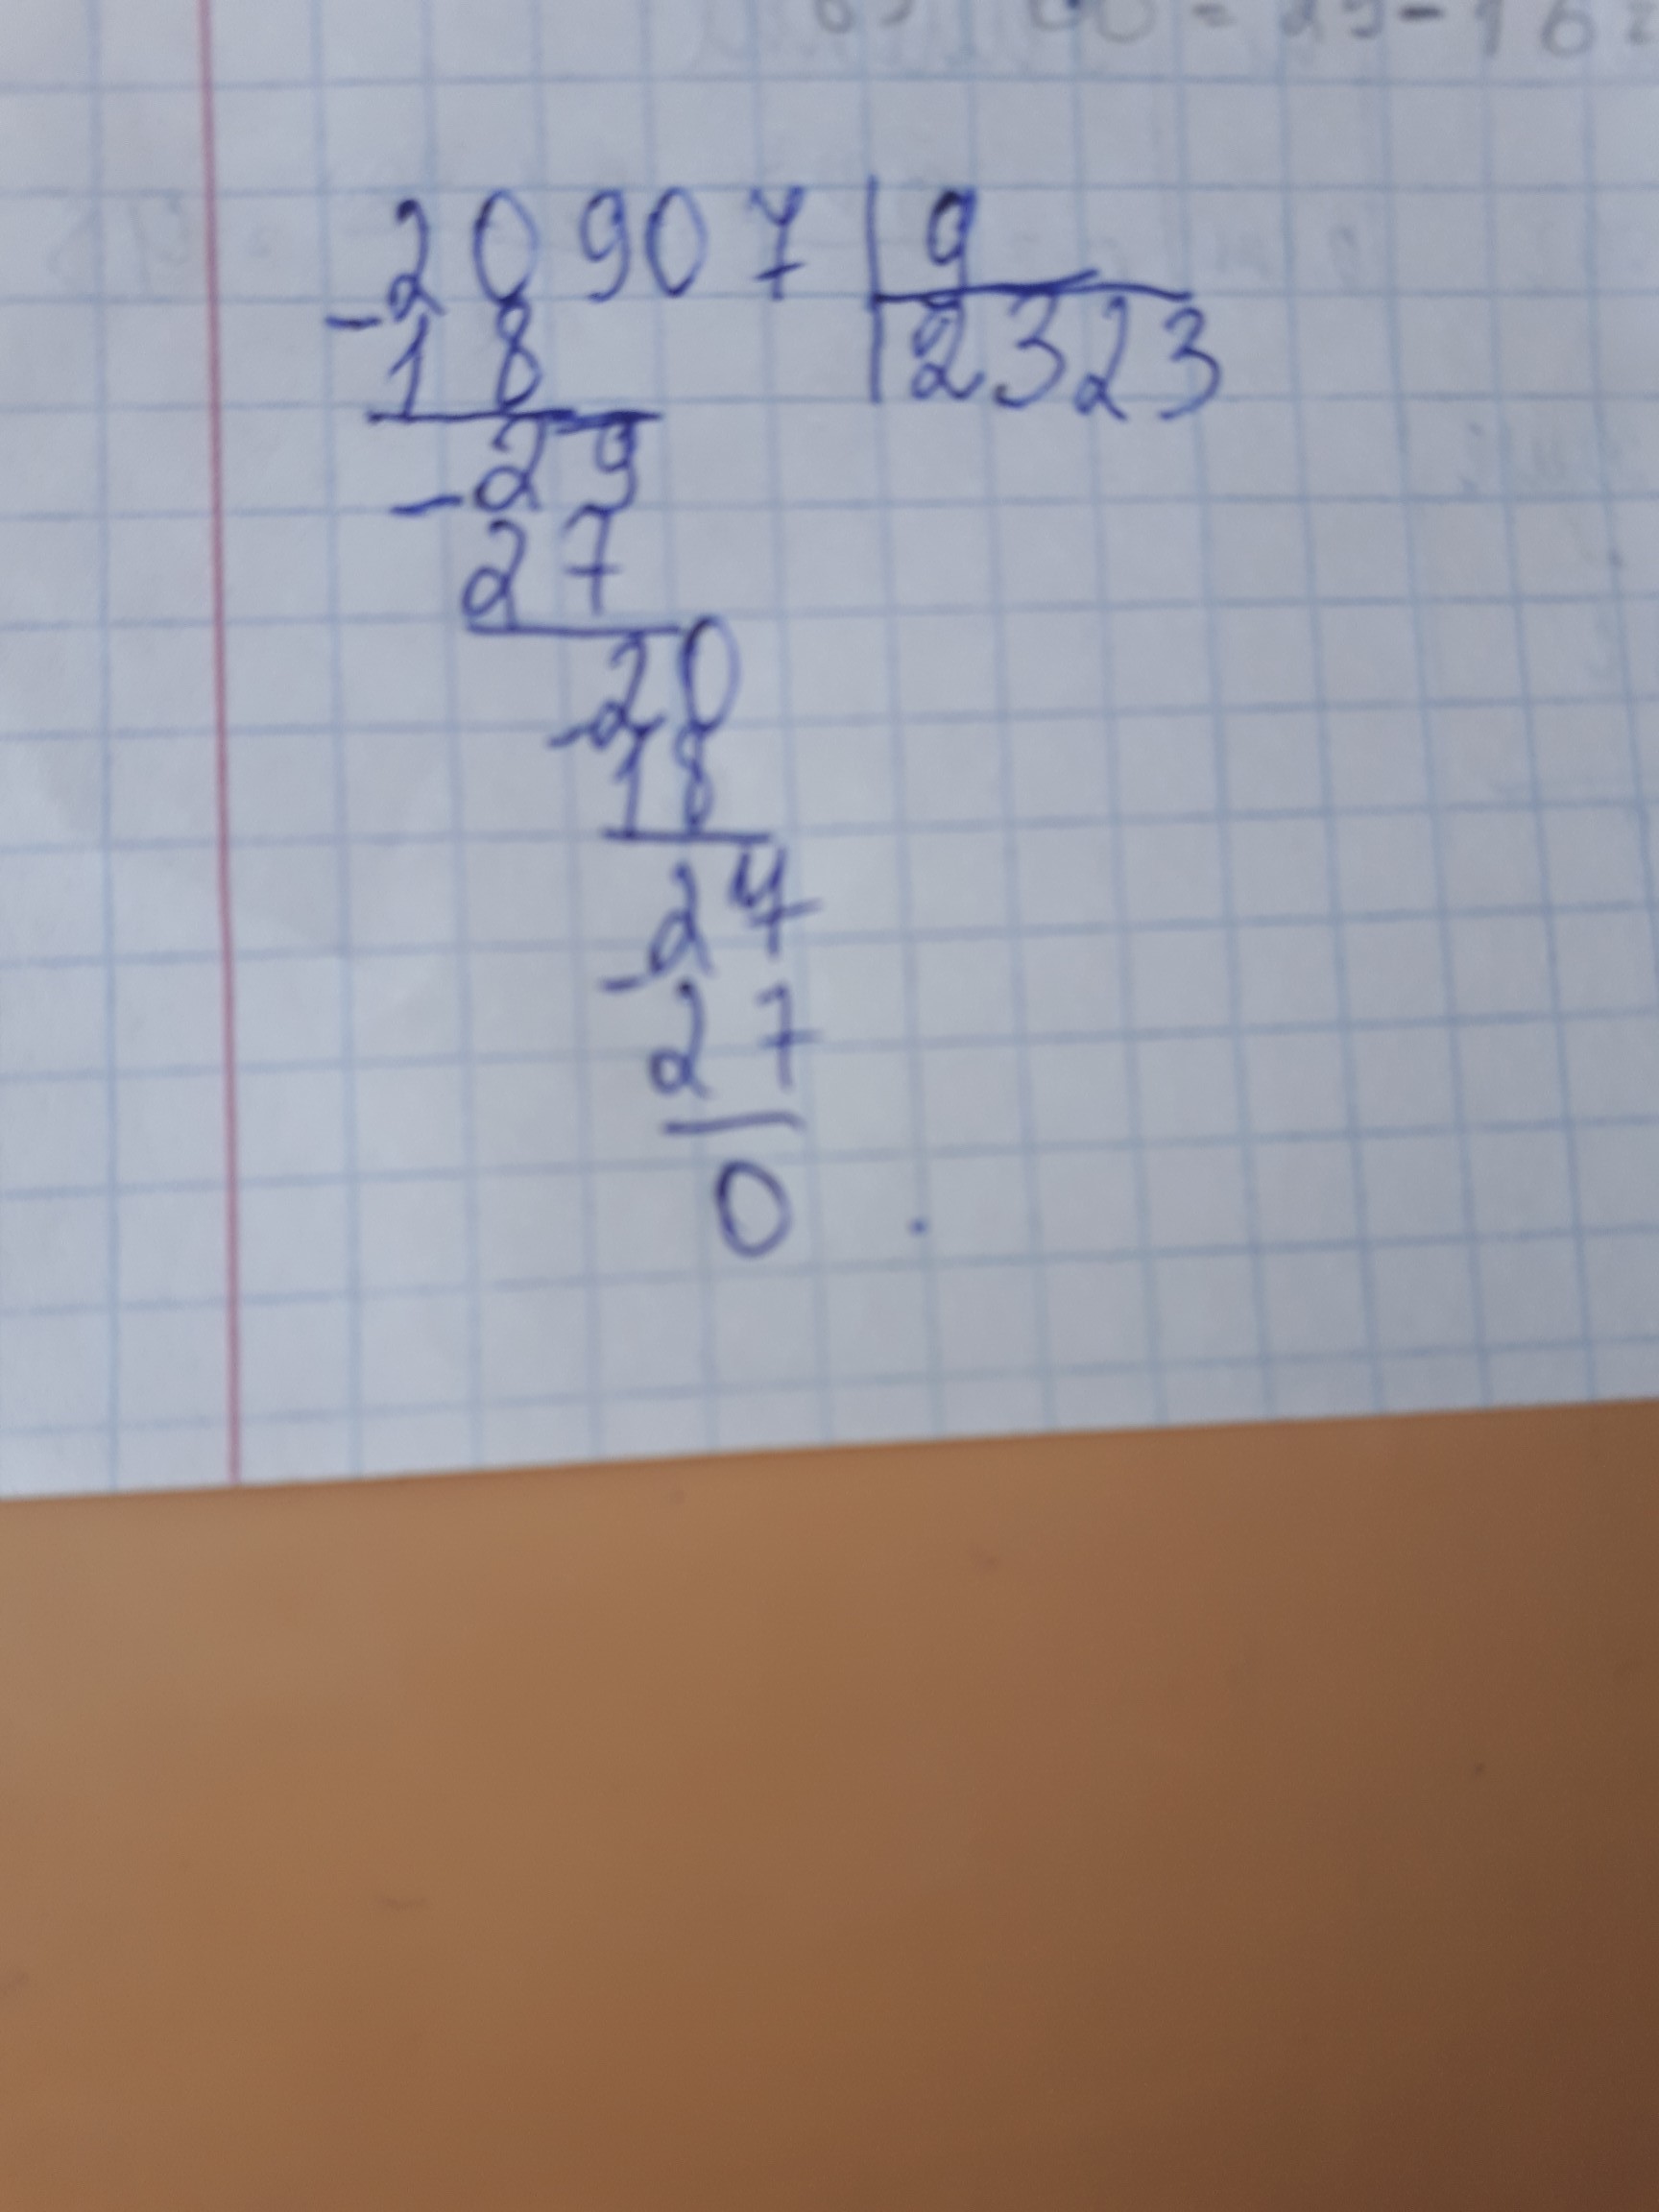 20907 | 9
- 18 | 2323
29
- 27
20
- 18
27
- 27
0 .